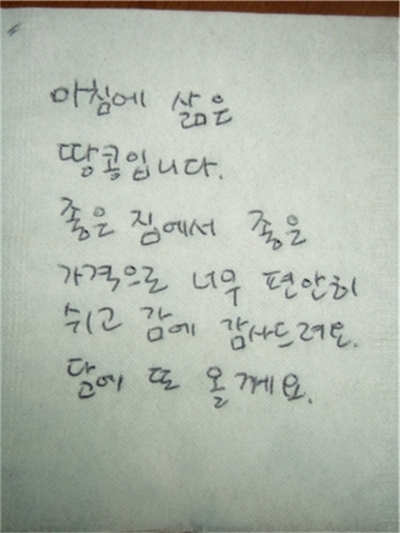 아침에 삶은
땅콩입니다.
좋은 집에서 좋은
가격으로 너무 편안히
쉬고 감에 감사드려요.
담에 또 올께요.